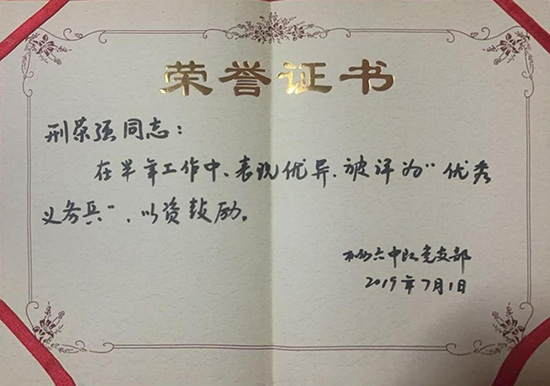 荣誉证书
刑荣强同志：
在半年工作中、表现优异，被评为"优秀
义务兵"，以资鼓励。
六中队党支部
2019年7月1日